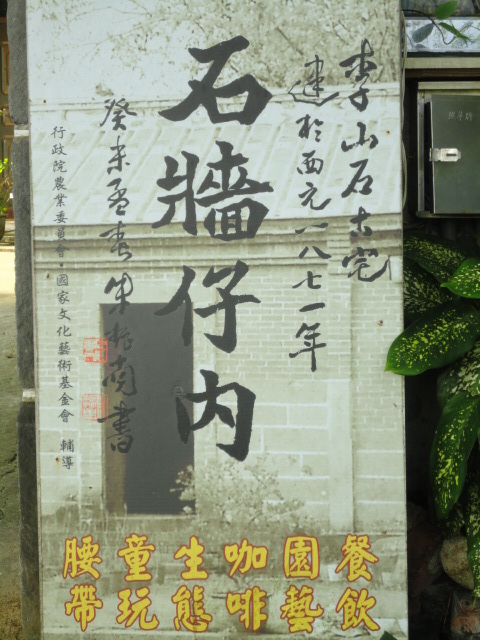 李山石古宅
建於西元一八七一年
石牆仔内
癸未孟春朱振南書
行政院農業委員會·國家文化藝術基金會 輔導
餐飲
園藝
咖啡
生態
童玩
腰帶